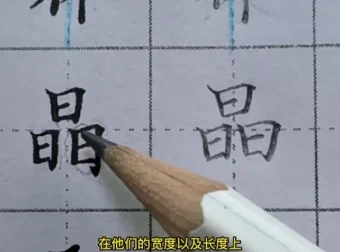 晶 晶
在他们的宽度以及长度上